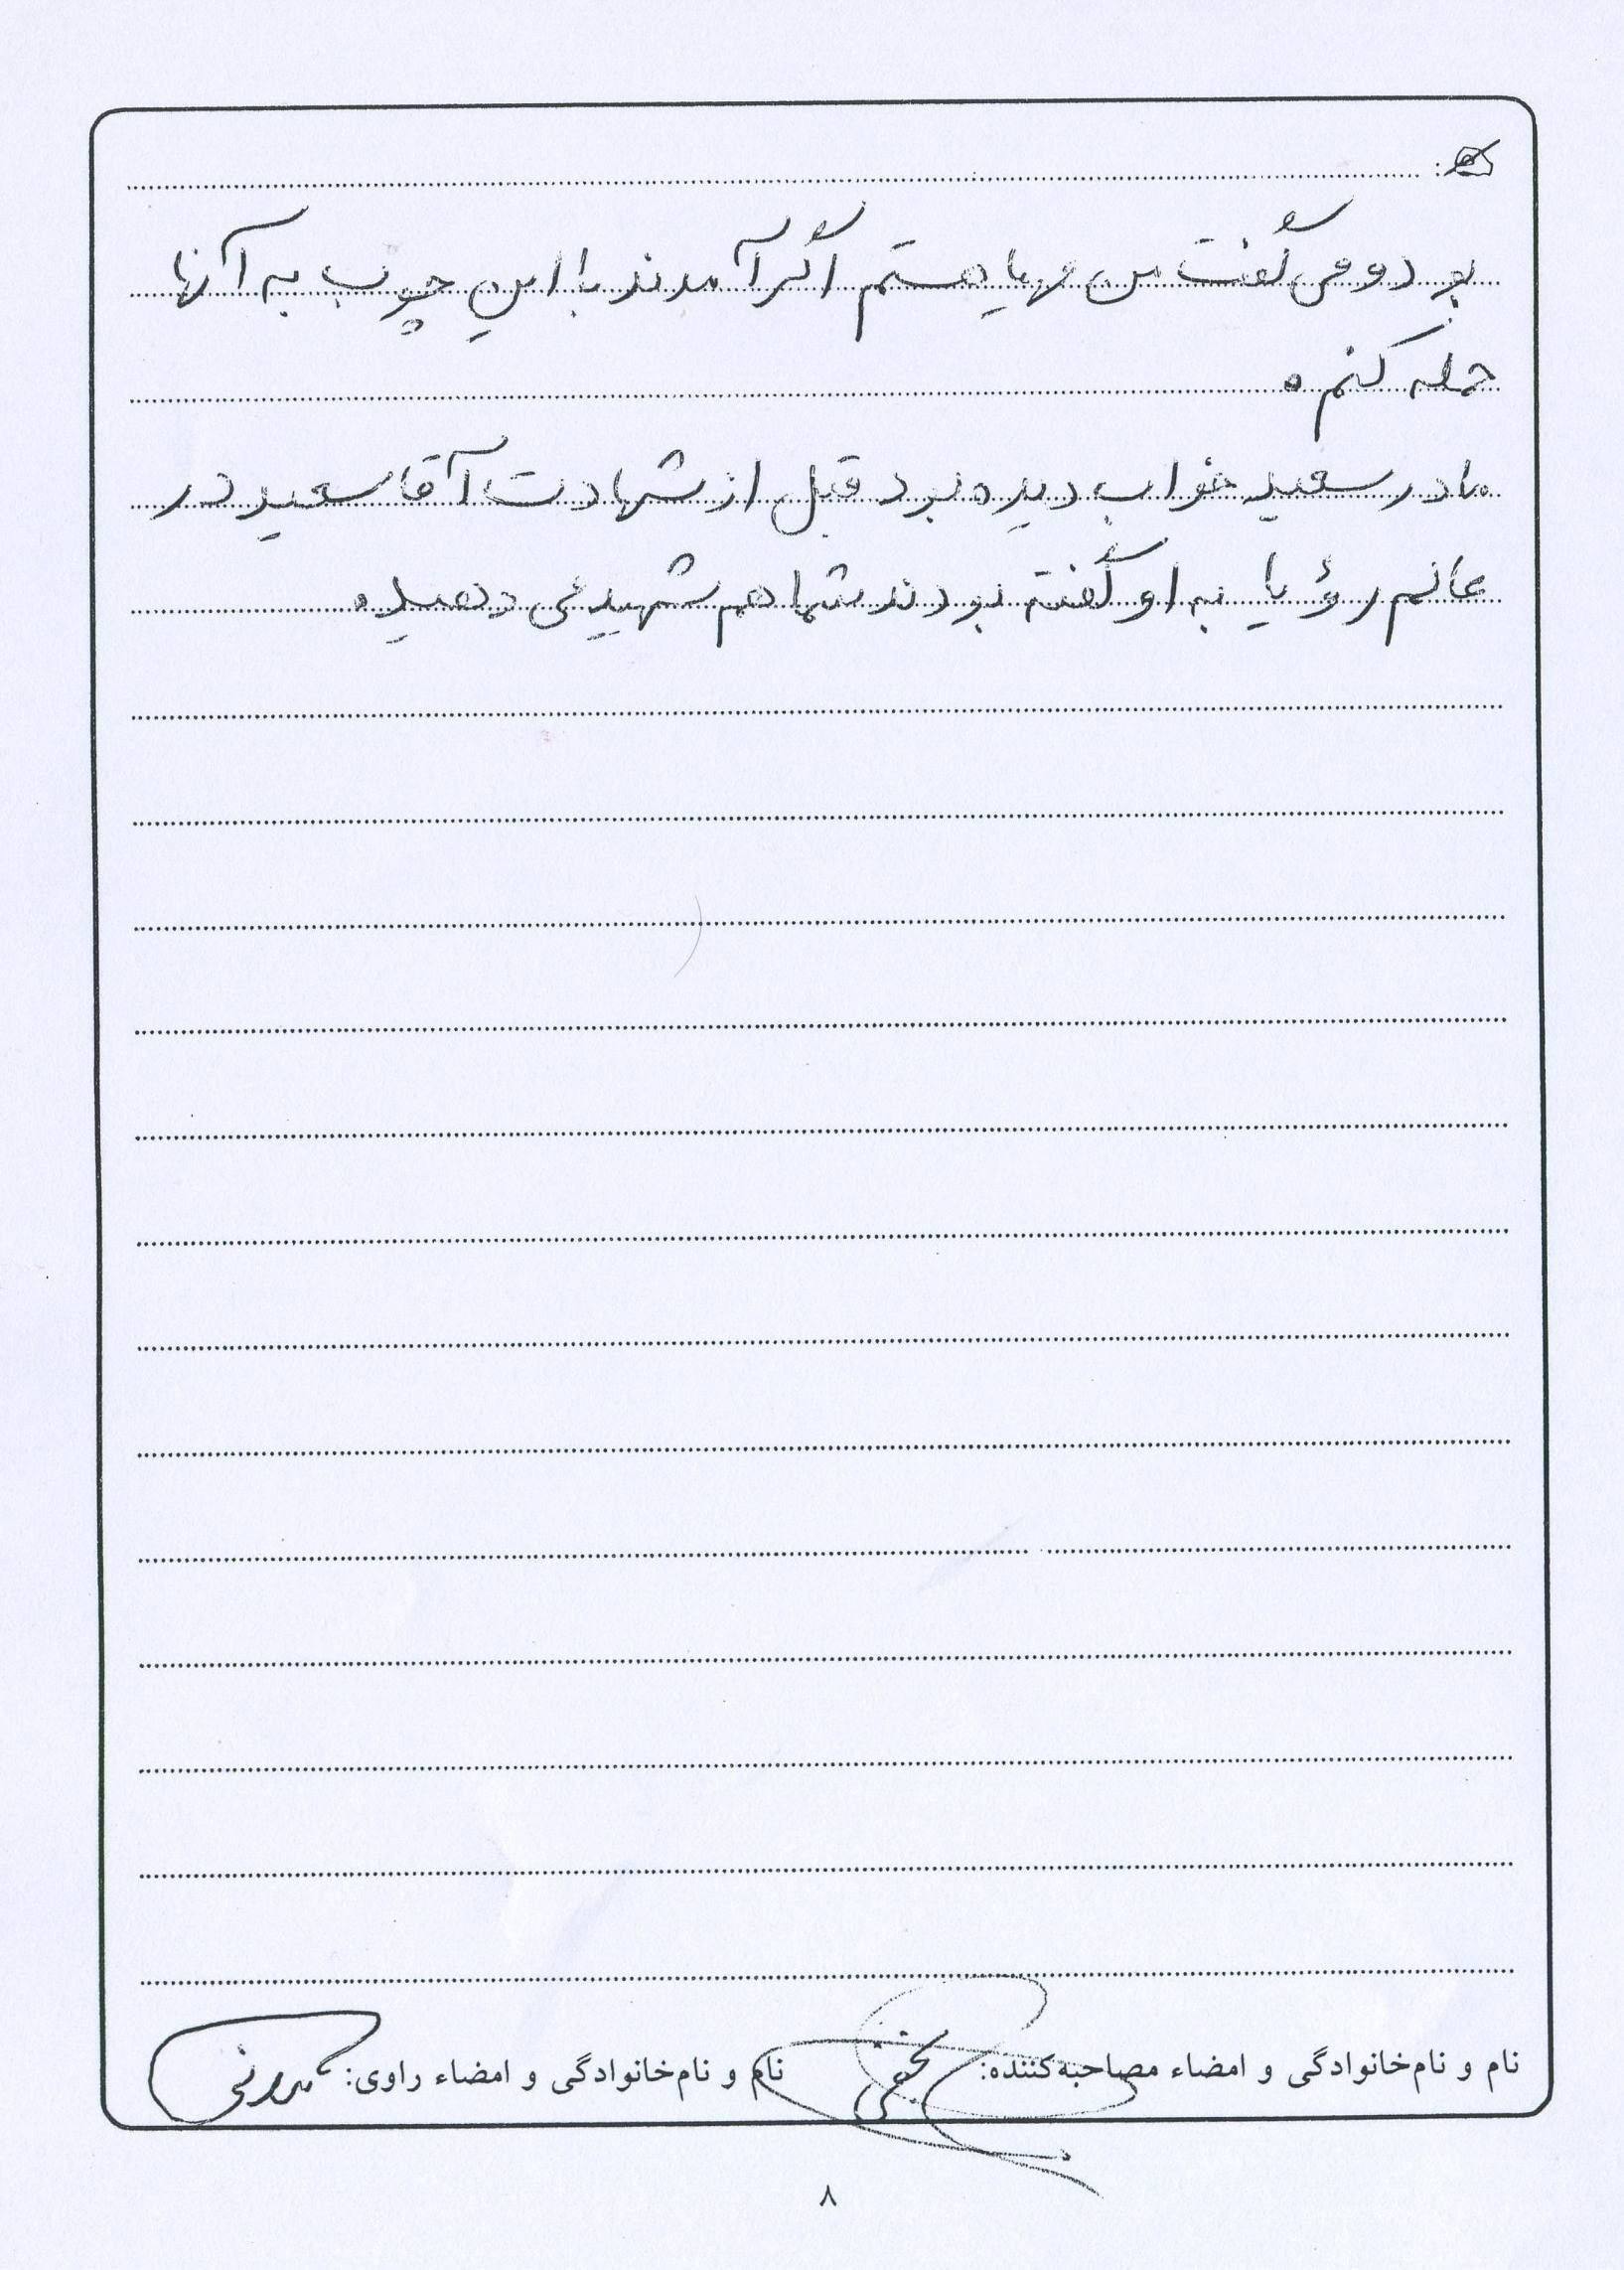 بود و می گفت من مهیا هستم اگر آمدند با این چوب به آنها
حمله کنم .
مادر سعید خواب دیده بود قبل از شهادت آقا سعید در
عالم رؤیا به او گفته بودند شما هم شهید می دهید .
نام و نام‌خانوادگی و امضاء مصاحبه‌کننده: نام و نام‌خانوادگی و امضاء راوی:
۸